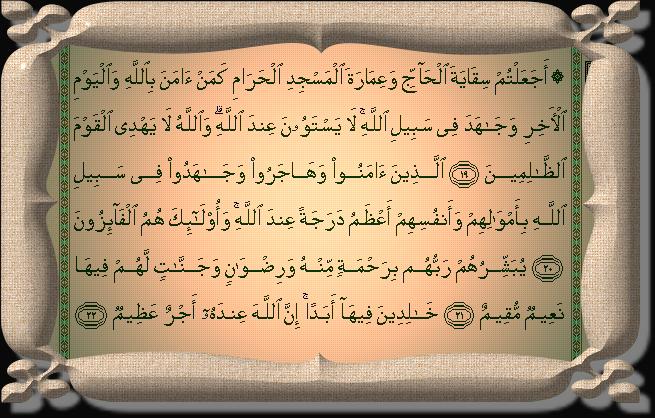 ۞ أَجَعَلْتُمْ سِقَايَةَ ٱلْحَآجِّ وَعِمَارَةَ ٱلْمَسْجِدِ ٱلْحَرَامِ كَمَنْ ءَامَنَ بِٱللَّهِ وَٱلْيَوْمِ
ٱلْأَخِرِ وَجَـٰهَدَ فِى سَبِيلِ ٱللَّهِ ۚ لَا يَسْتَوُۥنَ عِندَ ٱللَّهِ ۗ وَٱللَّهُ لَا يَهْدِى ٱلْقَوْمَ
ٱلظَّـٰلِمِينَ ١٩ ٱلَّذِينَ ءَامَنُوا۟ وَهَاجَرُوا۟ وَجَـٰهَدُوا۟ فِى سَبِيلِ
ٱللَّهِ بِأَمْوَٰلِهِمْ وَأَنفُسِهِمْ أَعْظَمُ دَرَجَةً عِندَ ٱللَّهِ ۚ وَأُو۟لَـٰٓئِكَ هُمُ ٱلْفَآئِزُونَ
٢٠ يُبَشِّرُهُمْ رَبُّهُم بِرَحْمَةٍ مِّنْهُ وَرِضْوَٰنٍ وَجَنَّـٰتٍ لَّهُمْ فِيهَا
نَعِيمٌ مُّقِيمٌ ٢١ خَـٰلِدِينَ فِيهَآ أَبَدًا ۚ إِنَّ ٱللَّهَ عِندَهُۥٓ أَجْرٌ عَظِيمٌ ٢٢